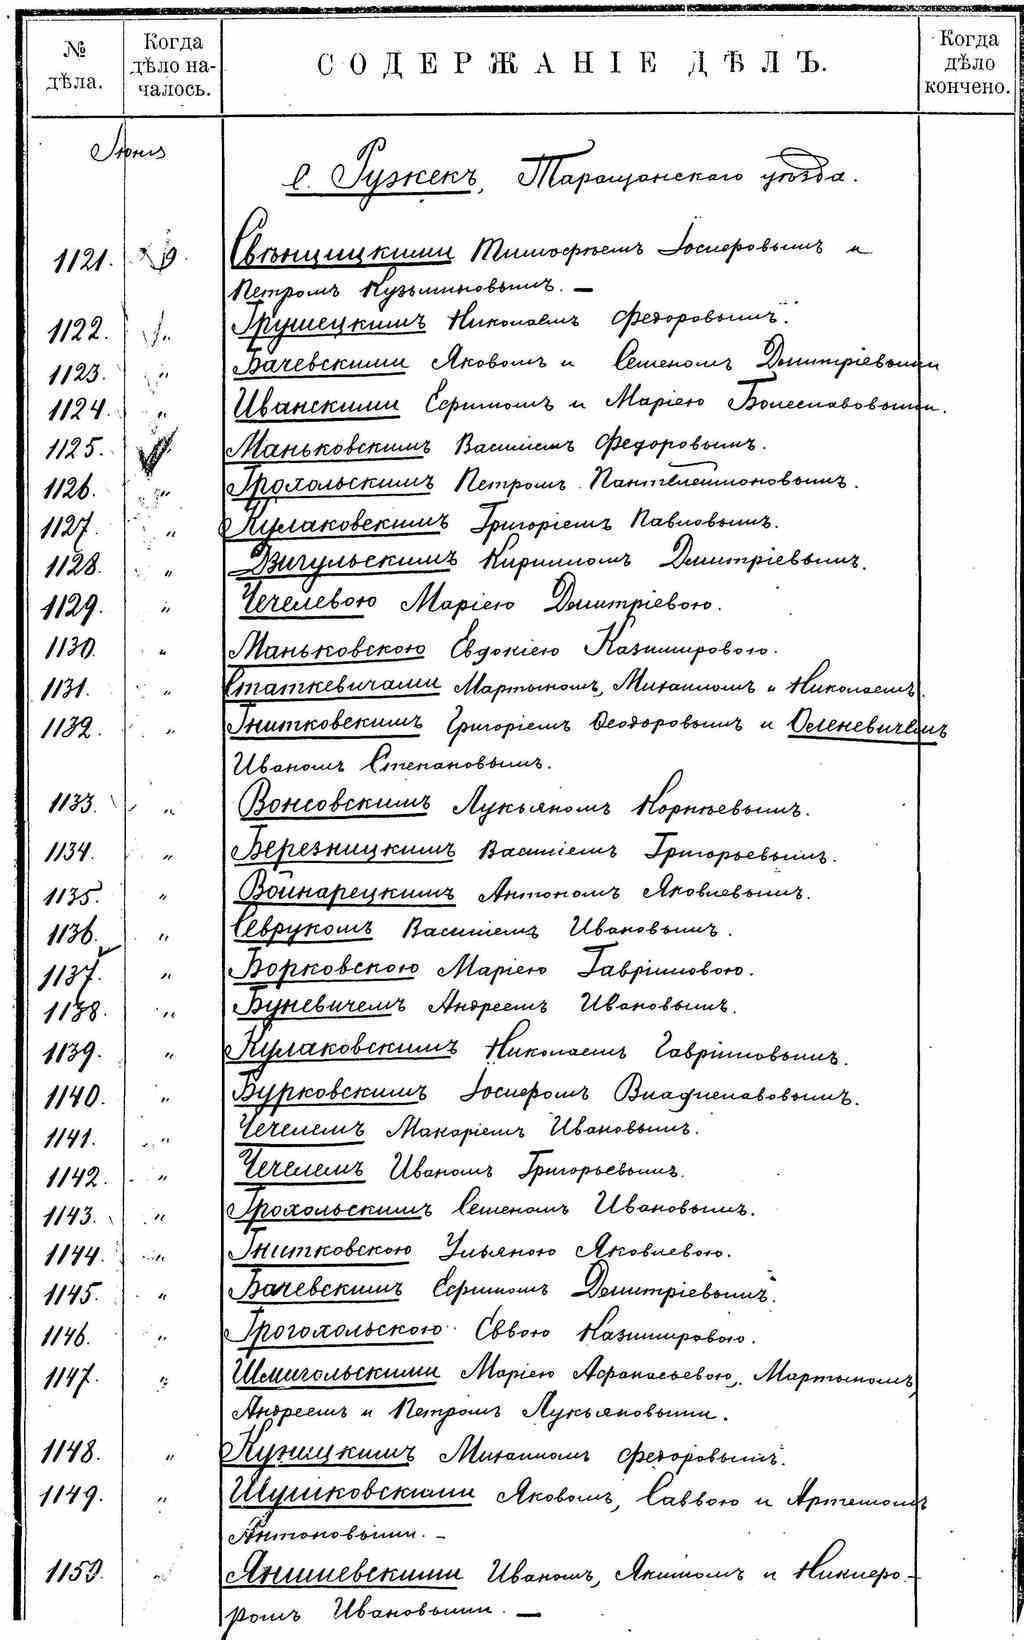 № дѣла. Когда дѣло началось. СОДЕРЖАНІЕ ДѢЛЪ. Когда дѣло кончено.
Іюнь
с. Ружекъ, Таращанскаго уѣзда.
1121. 9. Свѣнцицкими Тимофѣемъ Іосифовымъ и
Петромъ Кузьминовымъ. —
1122. " Грушецкимъ Николаемъ Федоровымъ.
1123. " Бачевскими Яковомъ и Семеномъ Дмитріевыми
1124. " Иванскими Ефимомъ и Маріею Болеславовыми.
1125. Маньковскимъ Василіемъ Федоровымъ.
1126. " Грохольскимъ Петромъ Пантелеимоновымъ.
1127. " Кулаковскимъ Григоріемъ Павловымъ.
1128. " Дзигульскимъ Кирилломъ Дмитріевымъ.
1129. " Чечелевою Маріею Дмитріевою.
1130. " Маньковскою Евдокіею Казимировою.
1131. " Статкевичами Мартыномъ, Михаиломъ и Николаемъ.
1132. " Гнитковскимъ Григоріемъ Феодоровымъ и Оленевичемъ
Иваномъ Степановымъ.
1133. " Вонсовскимъ Лукьяномъ Корнѣевымъ.
1134. " Березницкимъ Василіемъ Григорьевымъ.
1135. " Войнарецкимъ Антономъ Яковлевымъ.
1136. " Северукомъ Василіемъ Ивановымъ.
1137. " Борковскою Маріею Гавріиловою.
1138. " Буневичемъ Андреемъ Ивановымъ.
1139. " Кулаковскимъ Николаемъ Гавріиловымъ.
1140. " Бурковскимъ Іосифомъ Владиславовымъ.
1141. " Чечелемъ Макаріемъ Ивановымъ.
1142. " Чечелемъ Иваномъ Григорьевымъ.
1143. " Грохольскимъ Семеномъ Ивановымъ.
1144. " Гнитковскою Ульяною Яковлевою.
1145. " Бачевскимъ Ефимомъ Дмитріевымъ.
1146. " Грогохольскою Еввою Казимировою.
1147. " Шмигольскими Маріею Афанасьевою, Мартыномъ,
Андреемъ и Петромъ Лукьяновыми.
1148. " Куницкимъ Михаиломъ Федоровымъ.
1149. " Шушковскими Яковомъ, Саввою и Артемомъ
Антоновыми. —
1150. " Янишевскими Иваномъ, Акимомъ и Никифо-
ромъ Ивановыми. —